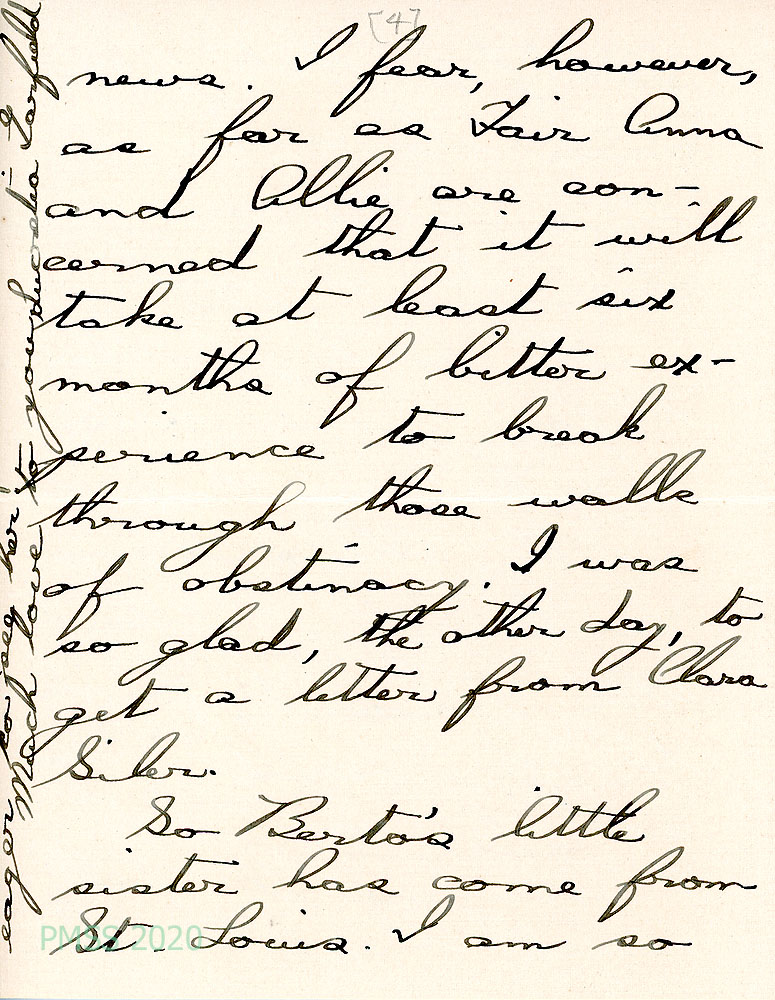 [4]
news. I fear, however,
as far as Fair Anna
and Allie are con-
cerned that it will
take at least six
months of bitter ex-
perience to break
through those walls
of obstinacy. I was
so glad, the other day, to
get a letter from Clara
Siler.
So Berto's little
sister has come from
St. Louis. I am so
eager to see her!
Much love to you, Lucretia Garfield
PMSS 2020